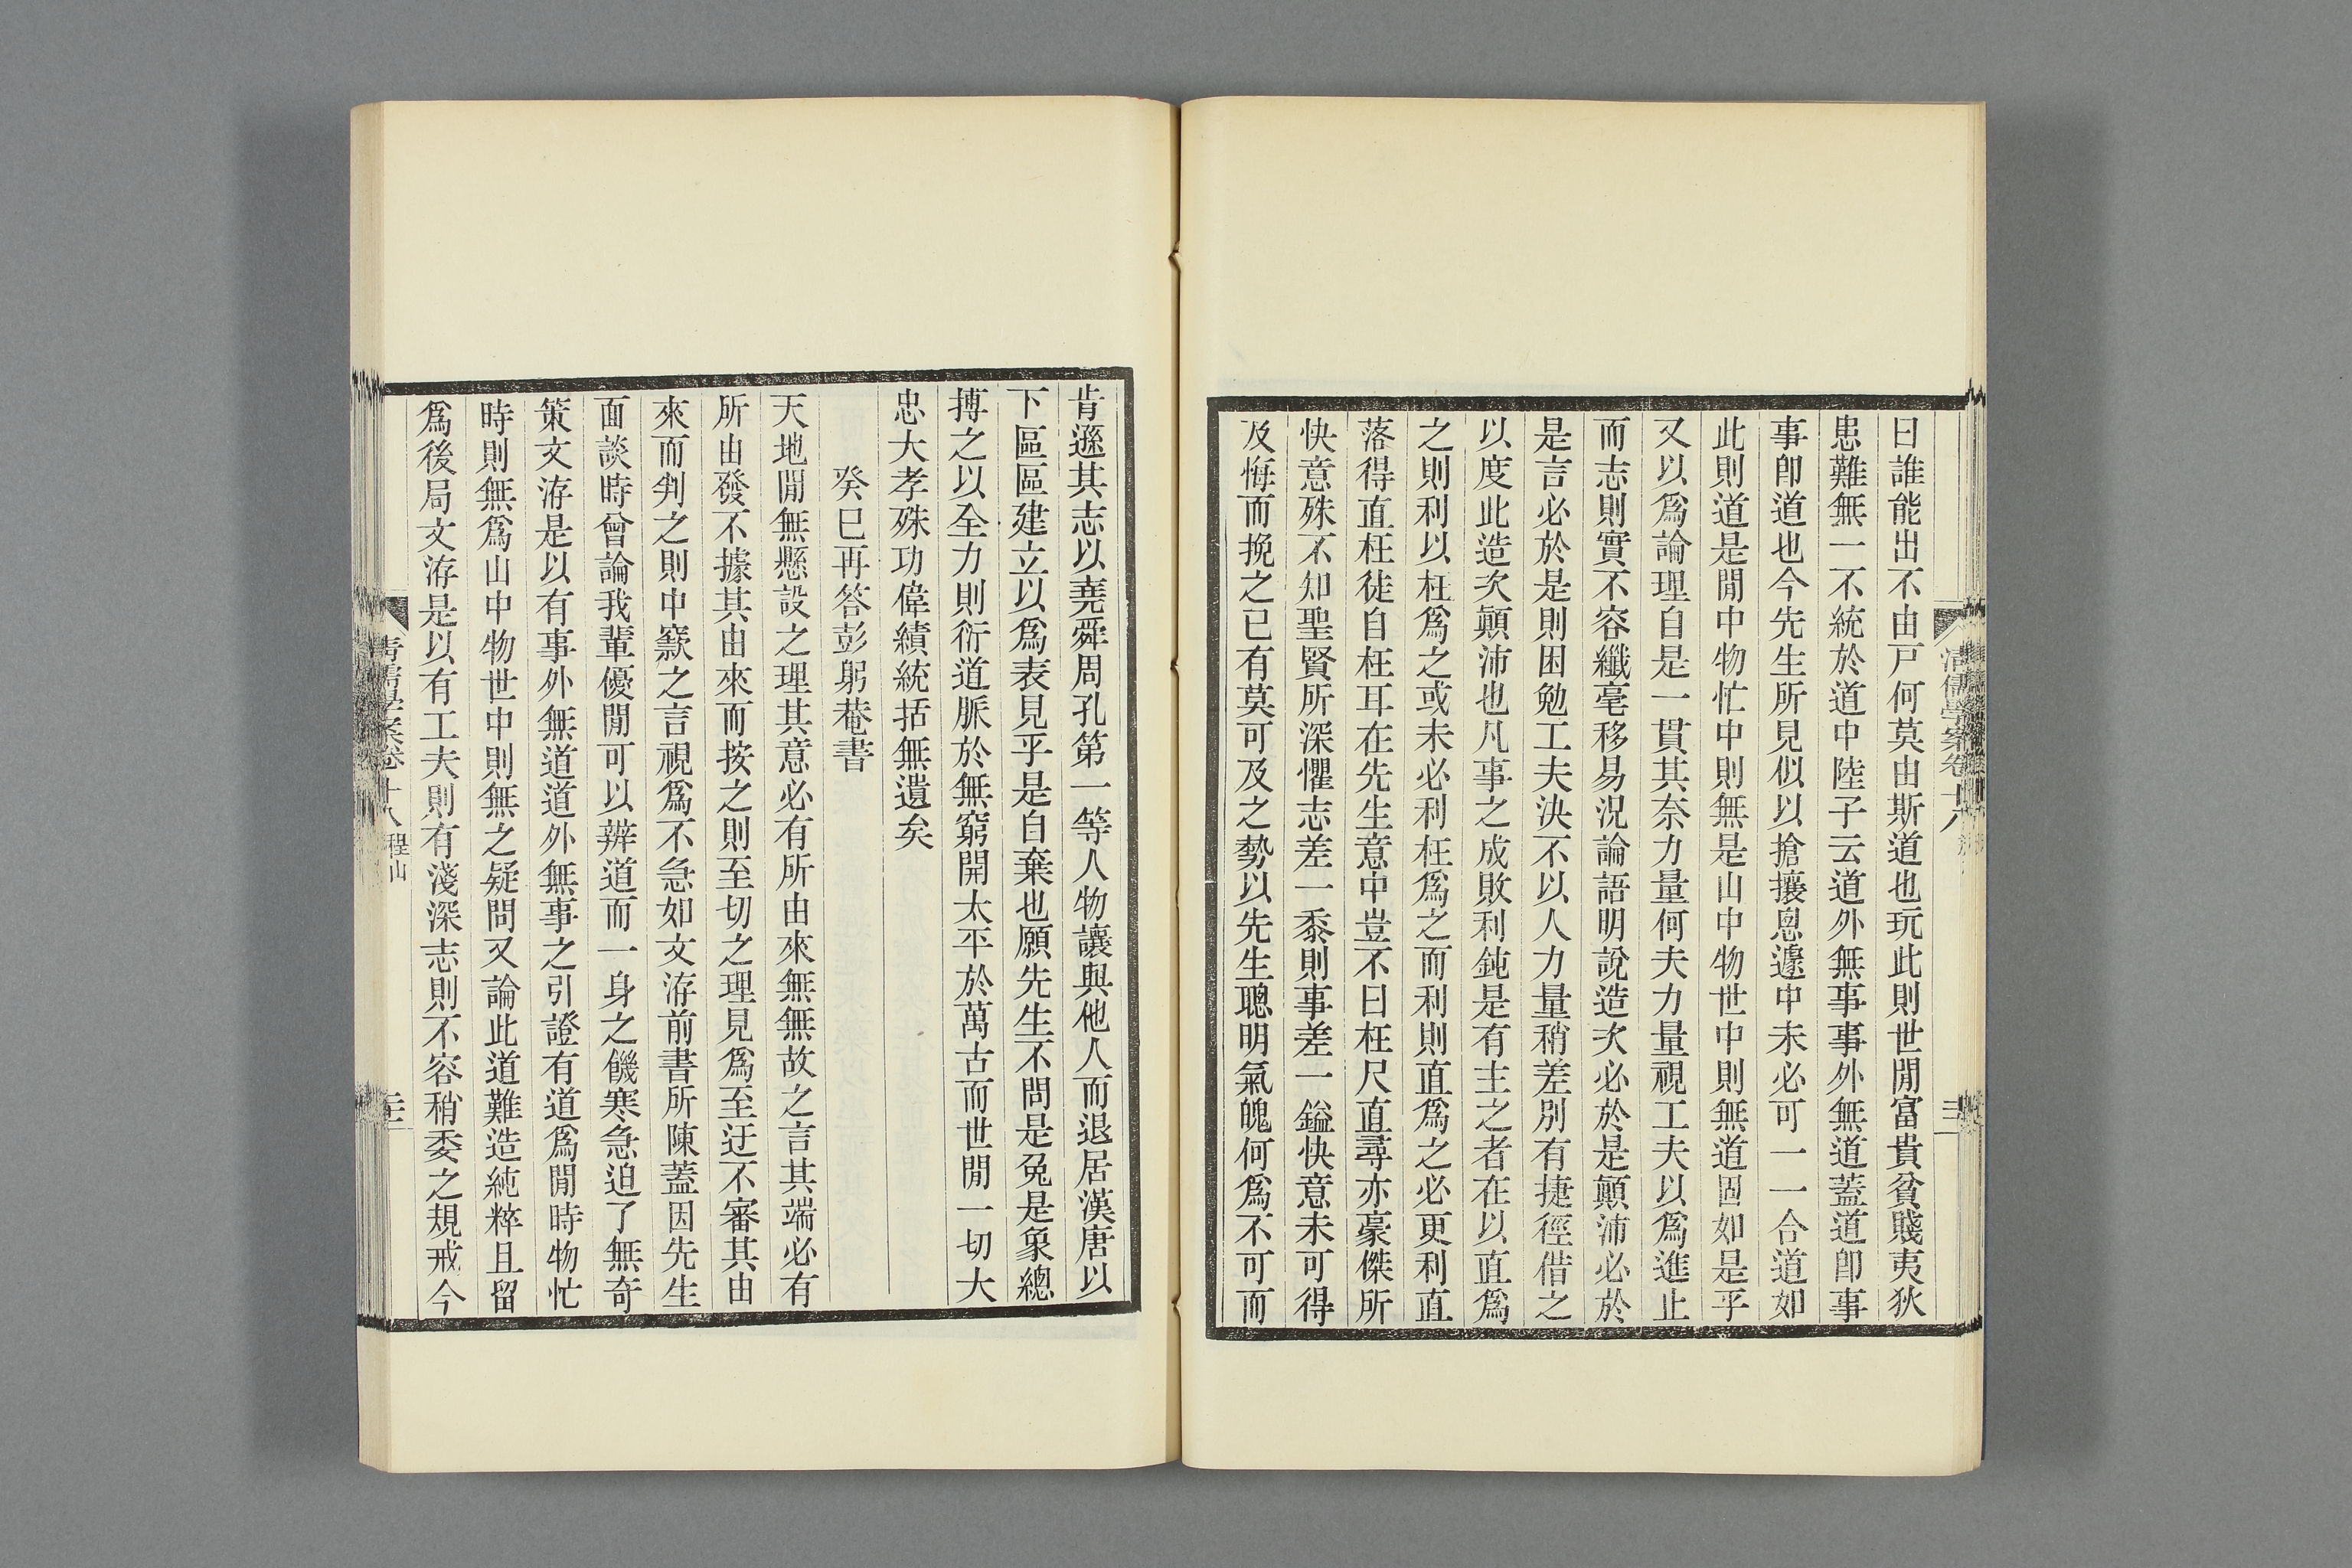 曰誰能出不由戸何莫由斯道也玩此則世閒富貴貧賤夷狄
患難無一不統於道中陸子云道外無事事外無道蓋道卽事
事卽道也今先生所見似以搶攘悤遽中未必可一一合道如
此則道是閒中物忙中則無是山中物世中則無道固如是乎
又以爲論理自是一貫其奈力量何夫力量視工夫以爲進止
而志則實不容纖毫移易況論語明說造次必於是顚沛必於
是言必於是則困勉工夫決不以人力量稍差別有捷徑借之
以度此造次顚沛也凡事之成敗利鈍是有主之者在以直爲
之則利以枉爲之或未必利枉爲之而利則直爲之必更利直
落得直枉徒自枉耳在先生意中豈不曰枉尺直尋亦豪傑所
快意殊不知聖賢所深懼志差一黍則事差一鎰快意未可得
及悔而挽之已有莫可及之勢以先生聰明氣魄何爲不可而
清儒學案卷十八
肯遜其志以堯舜周孔第一等人物讓與他人而退居漢唐以
下區區建立以爲表見乎是自棄也願先生不問是兔是象總
搏之以全力則衍道脈於無窮開太平於萬古而世閒一切大
忠大孝殊功偉績統括無遺矣
癸巳再答彭躬菴書
天地閒無懸設之理其意必有所由來無無故之言其端必有
所由發不據其由來而按之則至切之理見爲至迂不審其由
來而判之則中窾之言視爲不急如文洊前書所陳蓋因先生
面談時曾論我輩優閒可以辨道而一身之饑寒急迫了無奇
策文洊是以有事外無道道外無事之引證有道爲閒時物忙
時則無爲山中物世中則無之疑問又論此道難造純粹且留
爲後局文洊是以有工夫則有淺深志則不容稍委之規戒今
清儒學案卷十八 程山